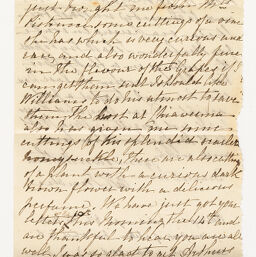 just brought me from Mrs
some cuttings of a vine
she has which is very curious and
rare, and also wonderfully fine
in the flavour of the Grapes if I
can get them well I should like
William to do his utmost to save
them the best at
also has given me some
cuttings of his splendid scarlet
honeysuckle, there are also cuttings
of a plant with a curious dark
brown flower with a delicious
perfume. We have just got your
letter, this morning the 14th and
are thankful to hear you are all
well, I was so glad to get